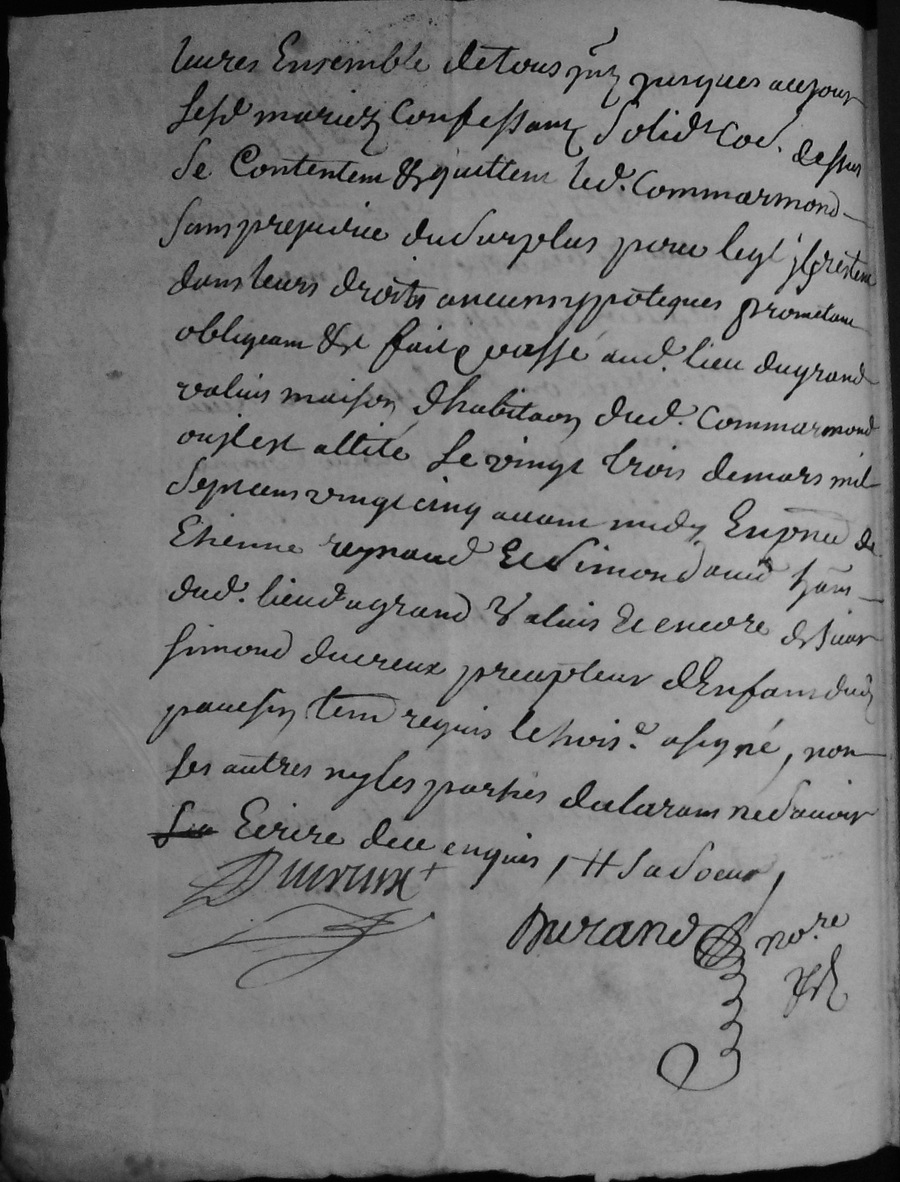 livres Ensemble de tous jusques a ce jour
lesd mariez Confessant solidt co. dessus
se Contentent & quittent led. Commarmond
sans prejudice du surplus pour leql ils restent
dans leurs droits ancens ypoteques prometant
obligeant & fait passé aud. lieu du grand
valuis maison, dhabitaon dud. Commarmond
ou il est allité le vingt trois de mars mil
sept cens vingt cinq avant midy En pnce de
Etienne reynaud Et Simond hāns
dud. lieu du grand Valuis & encore de sieur
simond ducreux precepteur d'Enfans dud
tem requis le trois.e a signé, non
les autres ny les parties declarant ne savoir
Ecrire de ce enquis, # sa soeur,
Ducreux
Durand no.re
Rl